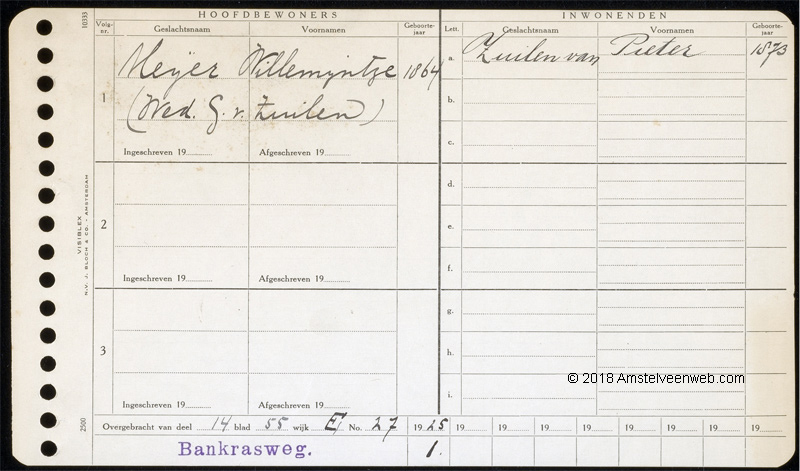 HOOFDBEWONERS INWONENDEN
Volg-nr. Geslachtsnaam Voornamen Geboorte-jaar Lett. Geslachtsnaam Voornamen Geboorte-jaar
1 Meijer Willemijntje 1864
(Wed. G. v. Zuilen)
Ingeschreven 19 Afgeschreven 19
a. Zuilen van Pieter 1873
b.
c.
2
Ingeschreven 19 Afgeschreven 19
d.
e.
f.
3
Ingeschreven 19 Afgeschreven 19
g.
h.
i.
Overgebracht van deel 14 blad 55 wijk E No. 27 1925 19 19 19 19 19 19 19 19
Bankrasweg. 1.
10333
VISIBLEX
N.V. J. BLOCH & CO. - AMSTERDAM
2500
© 2018 Amstelveenweb.com